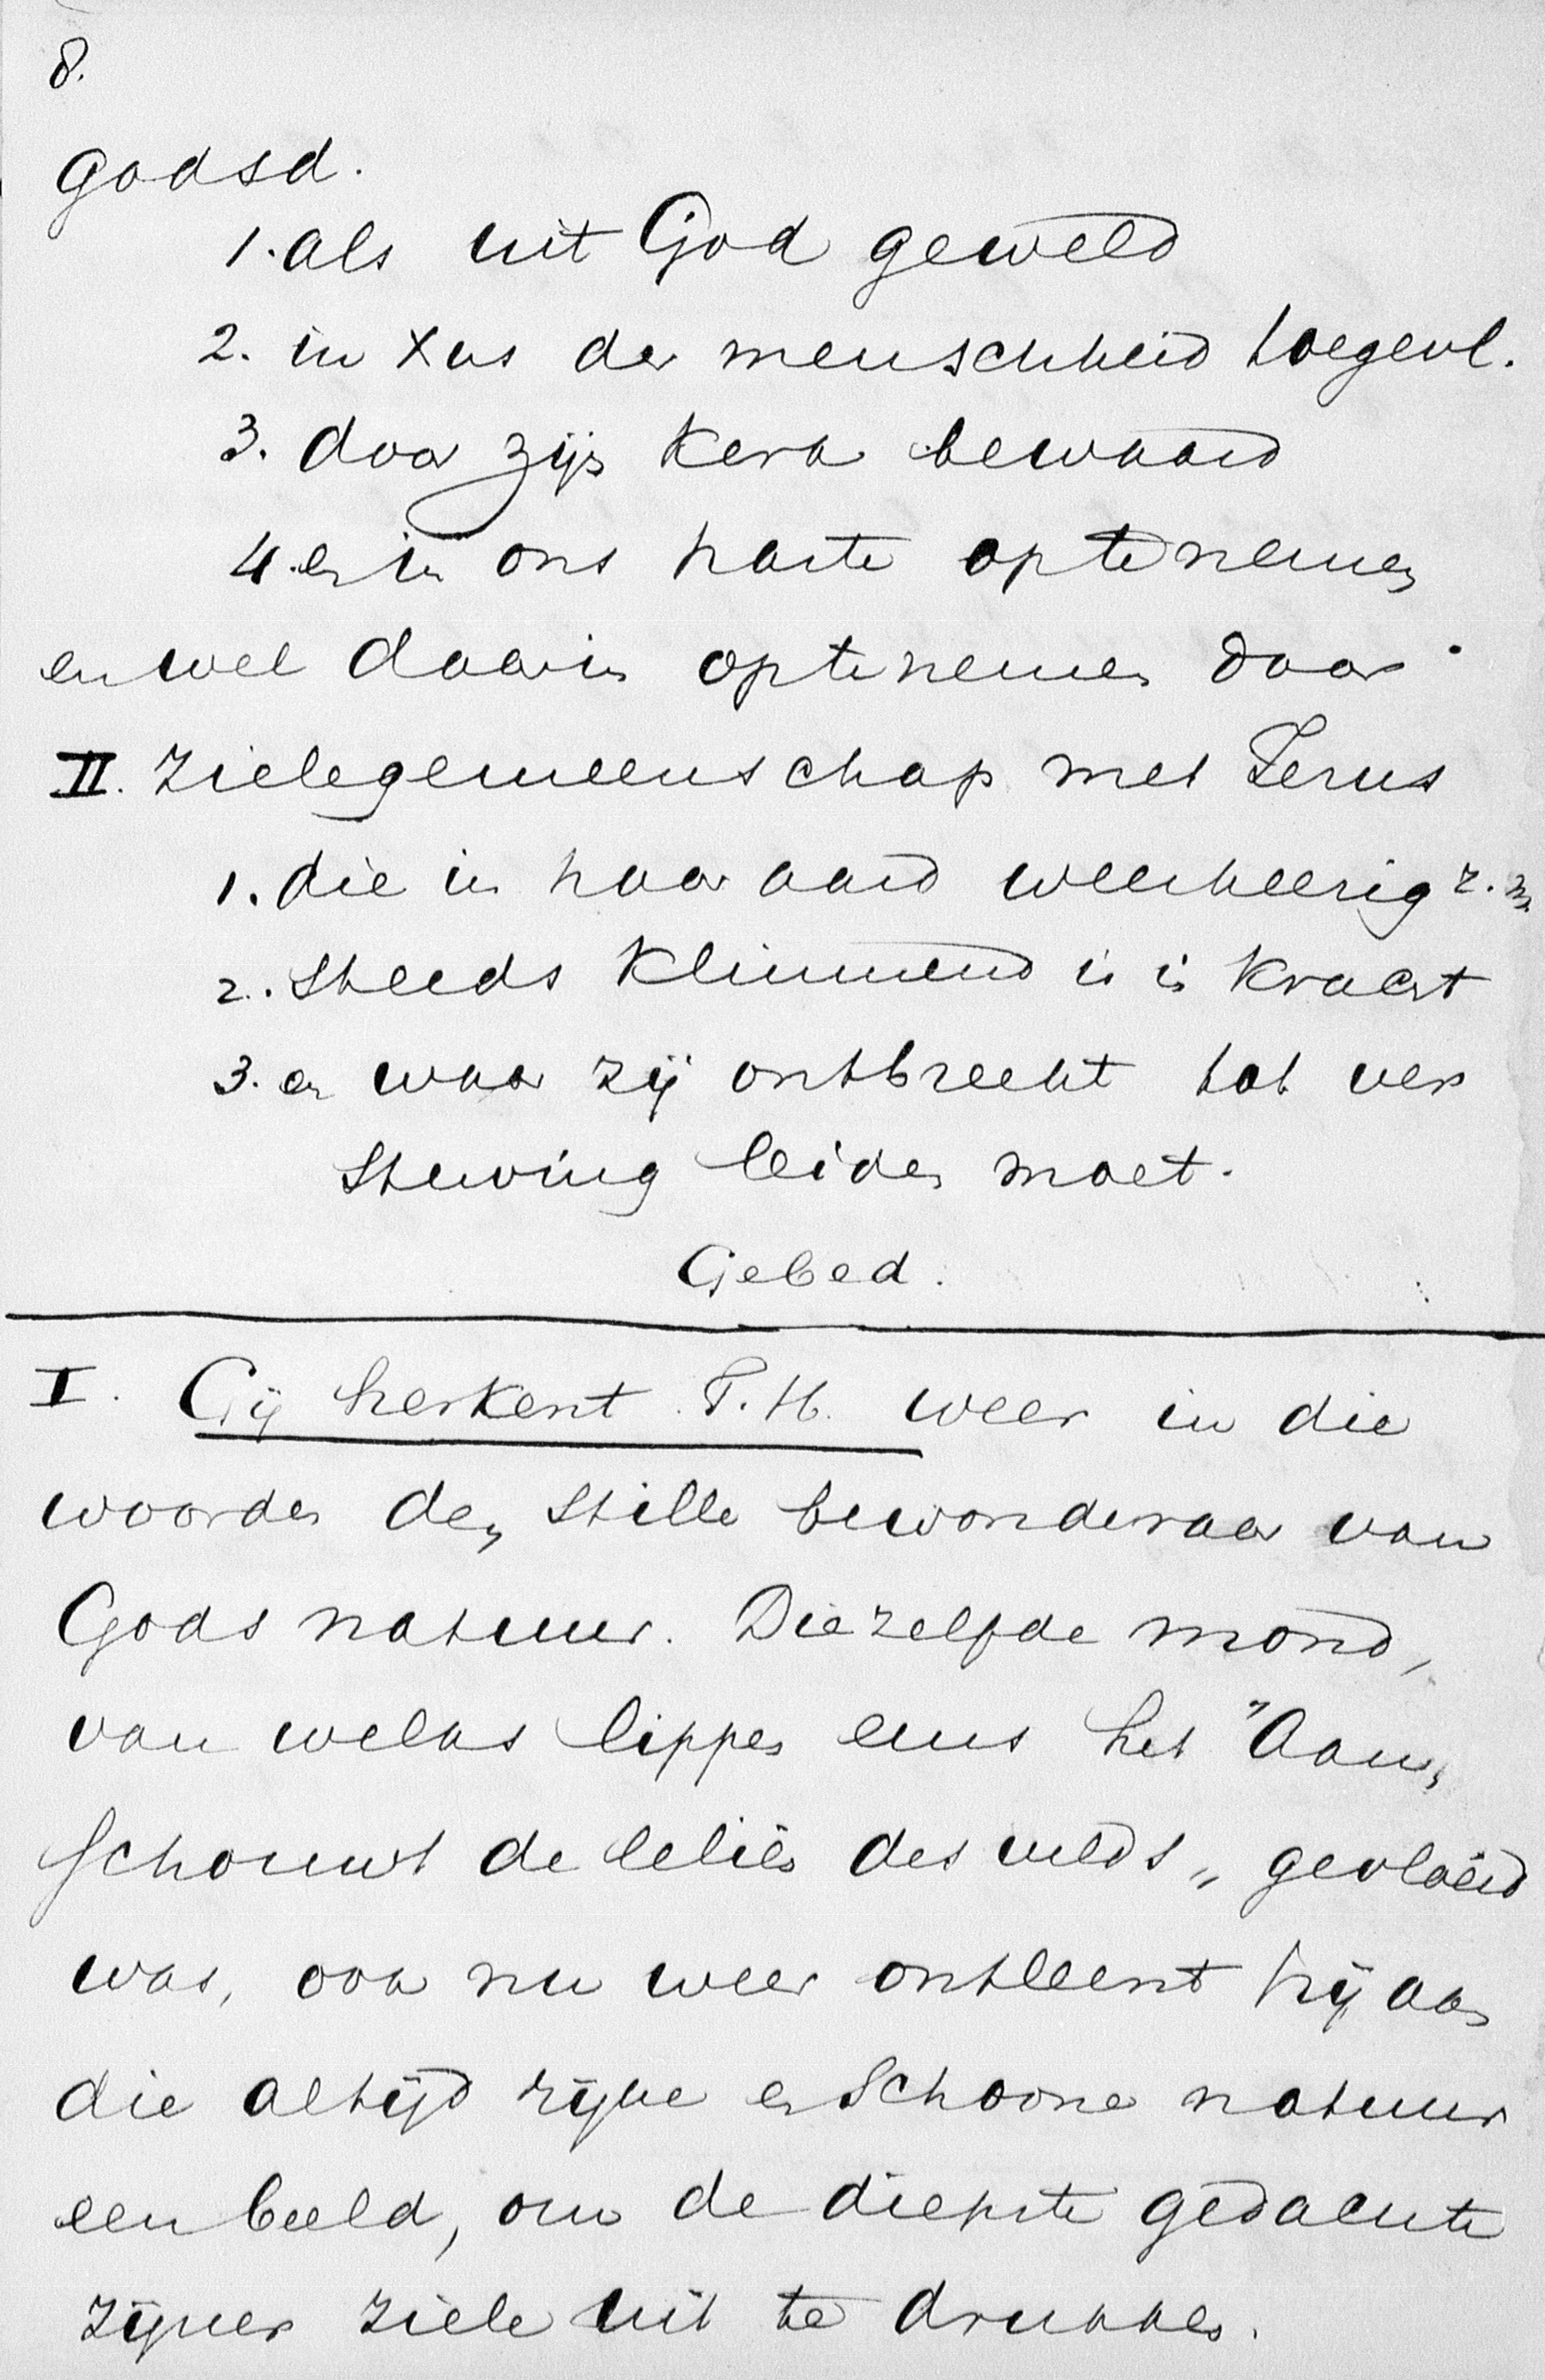 8.
godsd.
1. als uit God geweld
2. in Xus der menschheid toegevl.
3. door zijn Kerk bewaard
4. en in ons harte optenemen
en wel daarin optenemen door
II. Zielegemeenschap met Jezus
1. die in haar aard weerkeerig z. m.
2. steeds klimmend is in kracht
3. en waar zij ontbreekt tot ver
sterving leiden moet.
Gebed.
I. Gij herkent T. H. weer in die
woorden den stille bewonderaar van
Gods natuur. Diezelfde mond,
van welks lippen eens het "Aan,
schouwt de leliën des velds „ gevloeid
was, ook nu weer ontleent hij aan
die altijd rijke en schoone natuur
een beeld, om de diepste gedachte
zijner ziele uit te drukken.